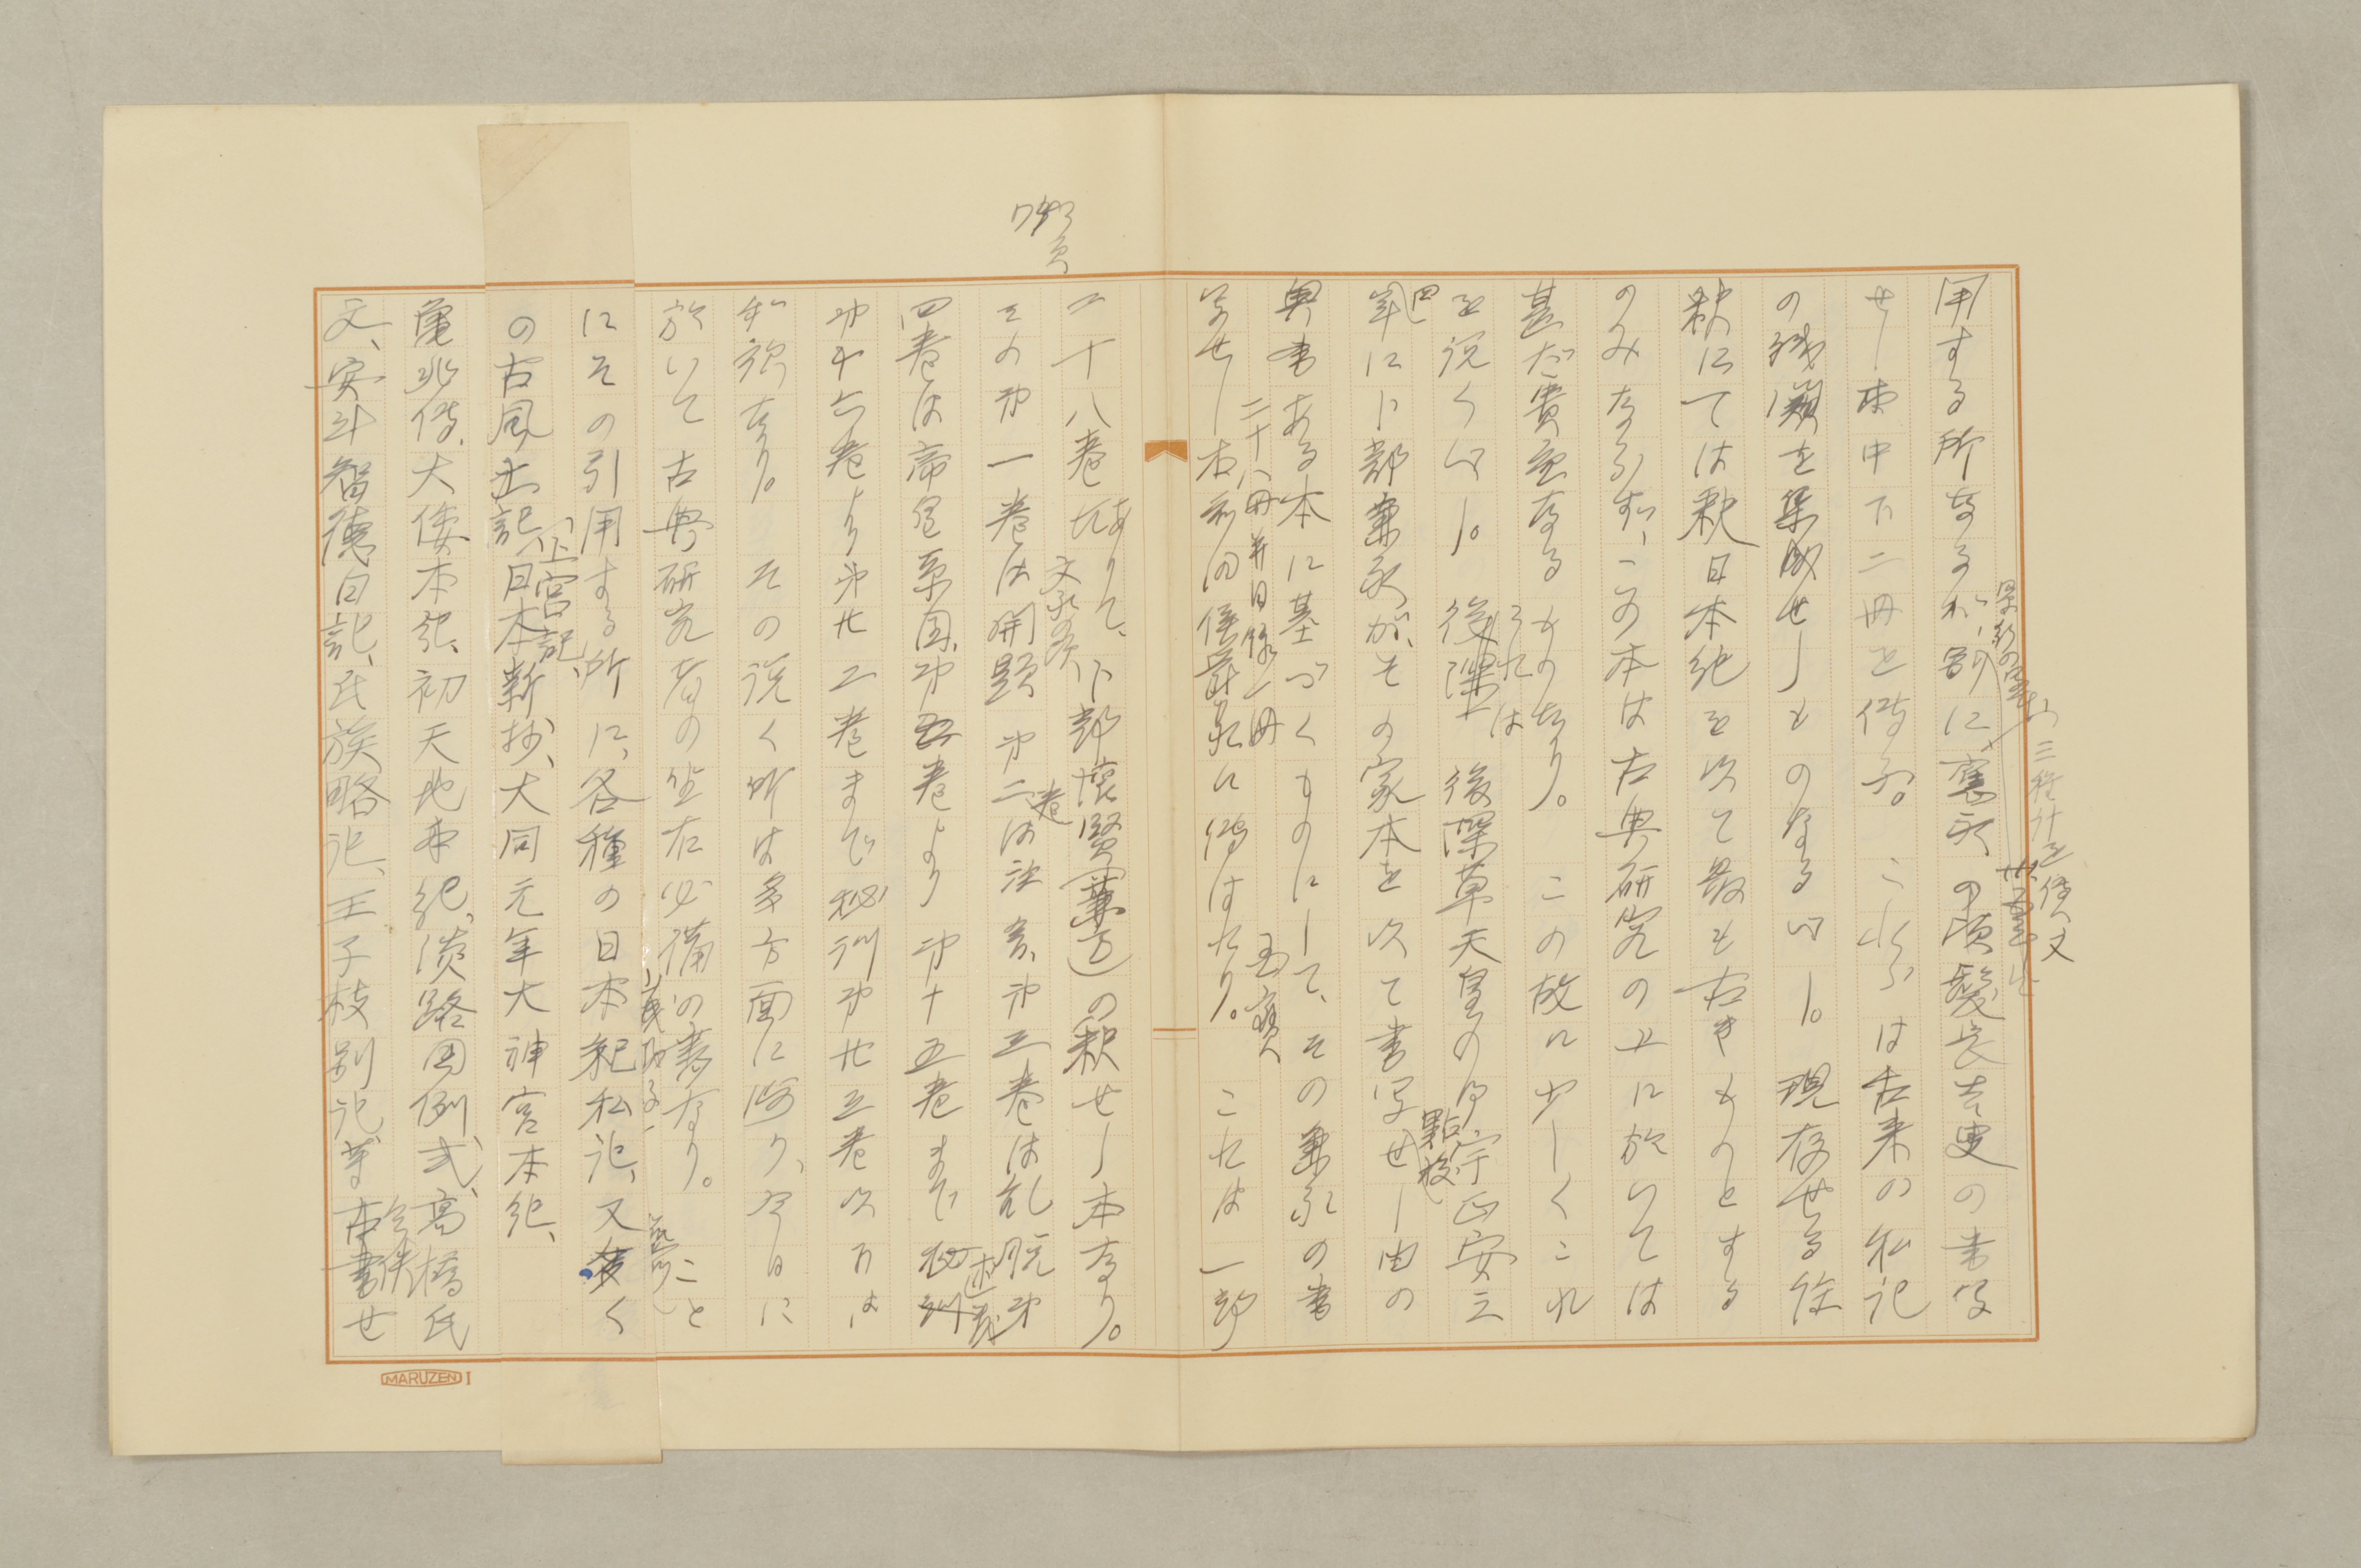 用する所なるが、別に応永の頃髪長吉叟の書写
せし本中下二冊を伝ふ。これらは古来の私記
の残闕を集成せしものなるべし。現存せる注
釈にては釈日本紀を以て最も古きものとする
のみならず、この本は古典研究の上に於いては
甚だ貴重なるものなり。この故に少しくこれ
を説くべし。
それは
後深草天皇の
正安三
四
年に卜部兼永が、その家本を以て書写せし由の
奥書ある本に基づくものにして、その兼永の書
写せし本前田侯爵家に伝はれり。これは一部
二十八冊并目録一冊
国宝
二十八巻ありて、卜部懐賢(兼方)の釈せし本なり。
その第一巻は開題第二巻は注音、第三巻は乱脱第
四巻は帝皇系図、第五巻より第十五巻まで述義
第十六巻より第廿二巻まで秘訓第廿三巻以下は
和歌なり。その説く所は多方面に渉り、今日に
於いて古典研究者の座右必備の書なり。
こと
にその引用する所に、各種の日本紀私記、又多く
の古風土記、上宮記、日本新抄、大同元年大神宮本紀、
亀兆伝、大倭本紀、初天地本紀、淡路国例式、高橋氏
文、安斗智徳日記、氏族略記、王子枝別記等
今佚
せ
MARUZEN I